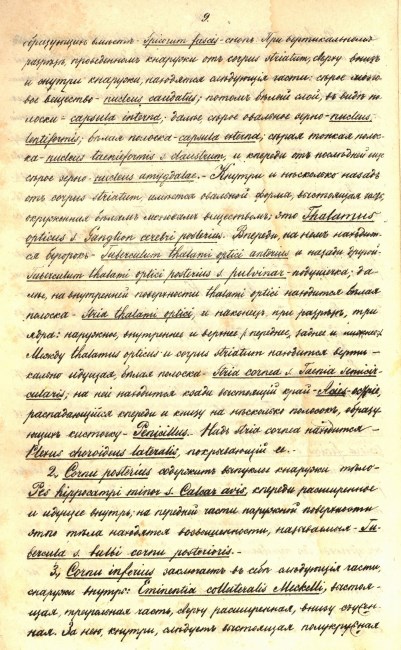 9.
образующихъ вмѣстѣ - Spicorum fascis - снопъ. При вертикальномъ
разрѣзѣ, проведенномъ кнаружи отъ corpus striatum, сверху внизъ
и снутри кнаружи, находятся слѣдующія части: сѣрое мозго-
вое вещество - nucleus caudatus; потомъ бѣлый слой, въ видѣ по-
лоски - capsula interna; далѣе сѣрое овальное зерно - nucleus
lentiformis; бѣлая полоска - capsula externa; сѣрая тонкая полос-
ка - nucleus taeniformis s. claustrum, и кпереди отъ послѣдней еще
сѣрое зерно - nucleus amygdalae. - Кнутри и нѣсколько назадъ
отъ corpus striatum имѣется овальной формы, выстоящая
окруженная бѣлымъ мозговымъ веществомъ; это Thalamus
opticus s. Ganglion cerebri posterius. Впереди, на немъ находит-
ся бугорокъ - Tuberculum thalami optici anterius и назади другой -
Tuberculum thalami optici posterius s. pulvinar - подушечка; да-
лѣе, на внутренней поверхности thalami optici находится бѣлая
полоска - Stria thalami optici, и наконецъ при разрѣзѣ, три
ядра: наружное, внутреннее и верхнее (переднее, заднее и нижнее).
Между thalamus opticus и corpus striatum находится верти-
кально идущая, бѣлая полоска - Stria cornea s. Taenia semicir-
cularis; на ней находится кзади выстоящій край - Acies - остріе,
распадающійся кпереди и книзу на нѣсколько полосокъ, образу-
ющихъ кисточку - Penicillus. Надъ Stria cornea находится -
Plexus choroideus lateralis, покрывающій ее. -
2. Cornu posterius содержитъ выпуклое кнаружи тѣло -
Pes hippocampi minor s. Calcar avis, кпереди расширенное
и идущее внутрь; на передней части наружной поверхности
этого тѣла находятся возвышенности, называемыя - Tu-
bercula s. bulbi cornu posterioris. -
3, Cornu inferius заключаетъ въ себѣ слѣдующія части,
снаружи внутрь: Eminentia collateralis Meckelii, выстоя-
щая, треугольная часть, сверху расширенная, внизу съужен-
ная. За нею, кнутри, слѣдуетъ выстоящая полукруглая